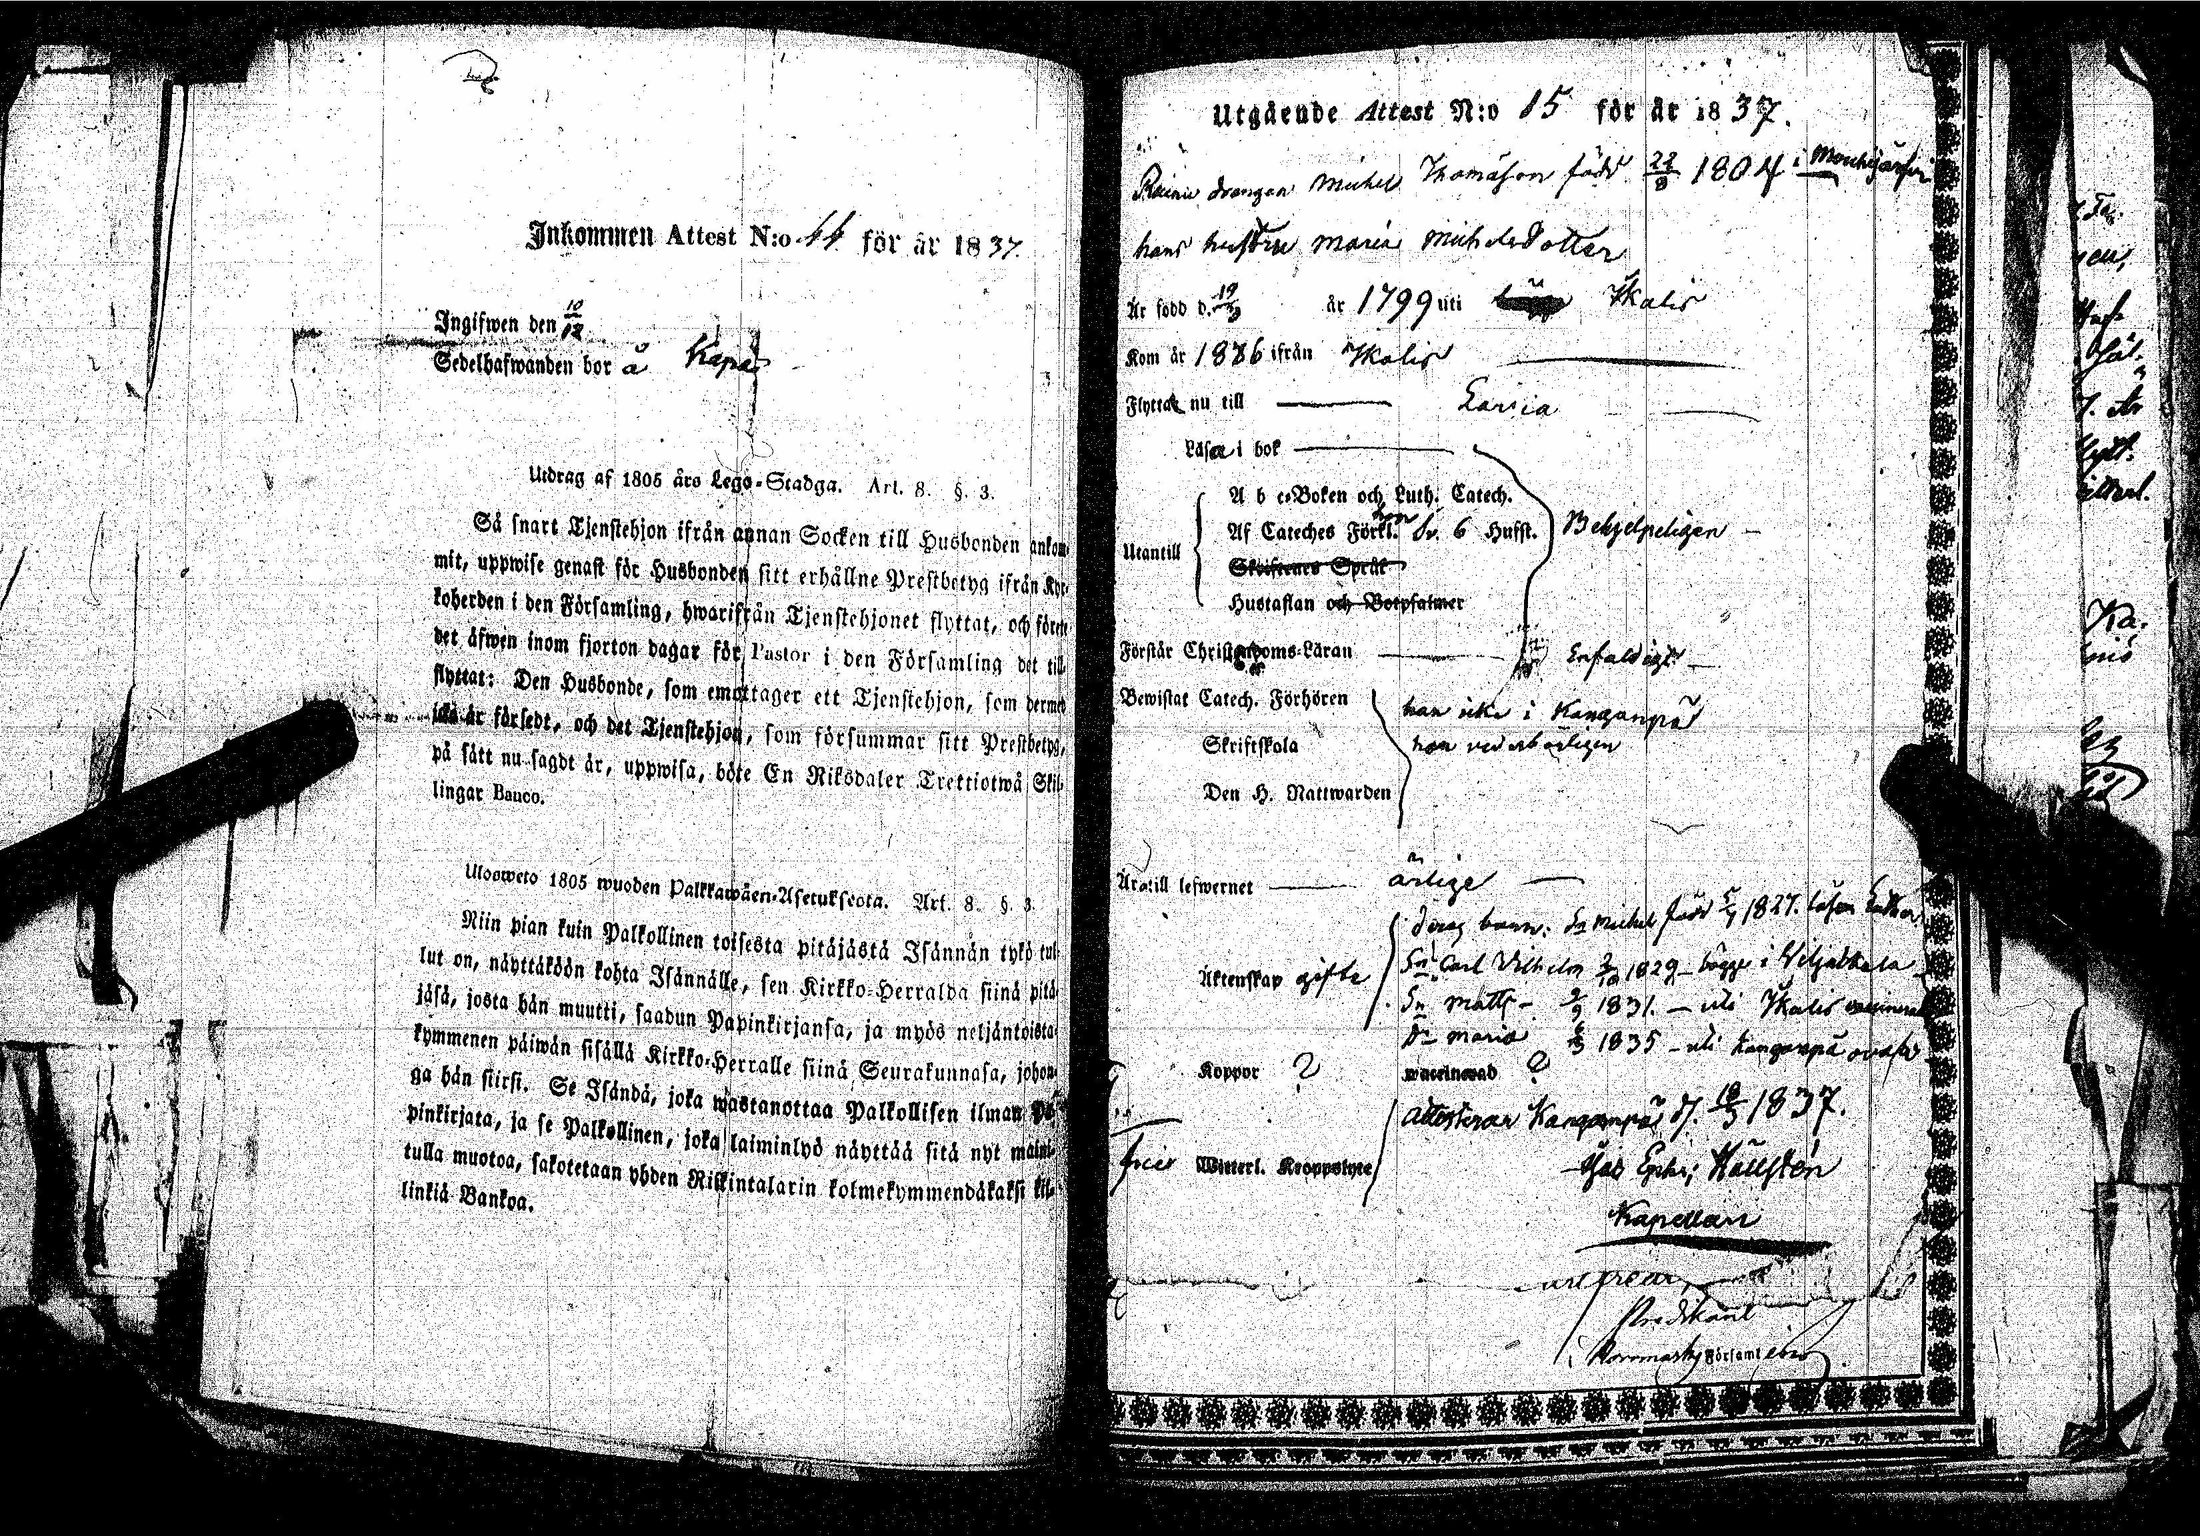 Inkommen Attest N:o 44 för år 1837.
Ingifwen den 10/12
Sedelhafwanden bor å Kapa
Utdrag af 1805 års Lego-Stadga. Art. 8. §. 3.
Så snart Tjenstehjon ifrån annan Socken till Husbonden ankom-
mit, uppwise genast för Husbonden sitt erhållne Prestbetyg ifrån Kyr-
koherden i den Församling, hwarifrån Tjenstehjonet flyttat, och förete
det äfwen inom fjorton dagar för Pastor i den Församling det till-
flyttat: Den Husbonde, som emottager ett Tjenstehjon, som dermed
icke är försedt, och det Tjenstehjon, som försummar sitt Prestbetyg,
på sätt nu sagdt är, uppwisa, böte En Riksdaler Trettiotwå Skil-
lingar Banco.
Ulosweto 1805 wuoden Palkkawäen-Asetuksesta. Art. 8. §. 3.
Niin pian kuin Palkollinen toisesta pitäjästä Isännän tykö tul-
lut on, näyttäköön kohta Isännälle, sen Kirkko-Herralda siinä pitä-
jäsä, josta hän muutti, saadun Papinkirjansa, ja myös neljäntoista-
kymmenen päiwän sisällä Kirkko-Herralle siinä Seurakunnasa, johon-
ga hän siirsi. Se Isändä, joka wastanottaa Palkollisen ilman Pa-
pinkirjata, ja se Palkollinen, joka laiminlyö näyttää sitä nyt maini-
tulla muotoa, sakotetaan yhden Riikintalarin kolmekymmendäkaksi kil-
linkiä Bankoa.
Utgående Attest N:o 15 för år 1837.
drängen Michel Thomasson född 22/8 1804 i
hans hustru Maria Michelsdotter
Är född d. 19/3 år 1799 uti Ikalis
Kom år 1836 ifrån Ikalis
Flyttat nu till Lavia
Läsa i bok
A b c-Boken och Luth. Catech.
Af Cateches Förkl. hon Sv. 6 Hufst. Behjelpeligen
Utantill
Skriftenes Språk
Hustaflan och Botpsalmer
Förstår Christendoms-Läran Enfaldigt
Bewistat Catech. Förhören han icke i Kanganpä
Skriftskola hon vederbörligen
Den H. Nattwarden
Är till lefwernet ärlige
deras barn: Sn Michel född 1827. läser
Äktenskap gifte Sn Carl Vilhelm 1829 - bägge i Viljakkala
Sn Matts - 1831. - uti Ikalis vaccinerad
Dr Maria 1835 - uti Kanganpä
Koppor ? vaccinerad ?
Attesterar Kanganpä d. 18/3 1837.
frie Witterl. Kroppslyte
Hällsten
Kapellan
Predikant
i Norrmark Församl